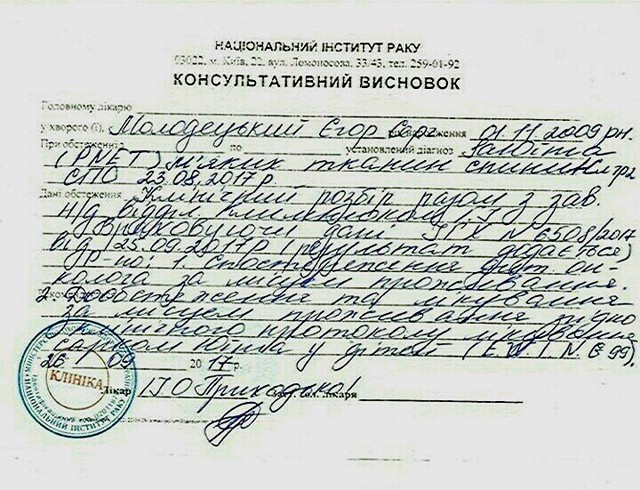 НАЦІОНАЛЬНИЙ ІНСТИТУТ РАКУ
03022, м. Київ, 22, вул. Ломоносова, 33/43, тел. 259-01-92
КОНСУЛЬТАТИВНИЙ ВИСНОВОК
Головному лікарю
у хворого (ї), Молодецький Єгор 01.11.2009 рн.
При обстеженні по установлений діагноз
(PNET) м'яких тканин спини
СПО 23.08.2017 р
Дані обстеження Клінічний розбір разом з зав.
Н/Д відділ.
Враховуючи дані ІГХ № 6508/2017
від 25.09.2017р (результат додається)
1. Спостереження дит. он-
колога за місцем проживання.
2. Дообстеження та лікування
за місцем проживання згідно
клінічного протоколу лікування
саркоми Юінга у дітей (E.W.I.N.G 99).
26 09 2017 р.
Лікар Приходько лікаря
КЛІНІКА
НАЦІОНАЛЬНИЙ ІНСТИТУТ РАКУ